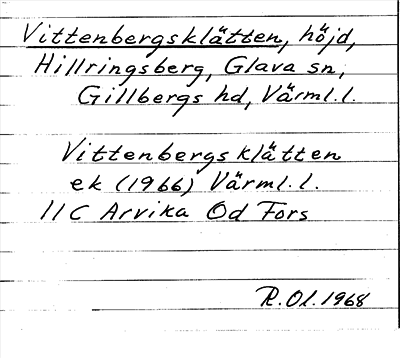 Vittenbergsklätten, höjd,
Hillringsberg, Glava sn,
Gillbergs hd, Värml.l.
Vittenbergsklätten
ek (1966) Värml.l.
11C Arvika Od Fors
R.Ol.1968